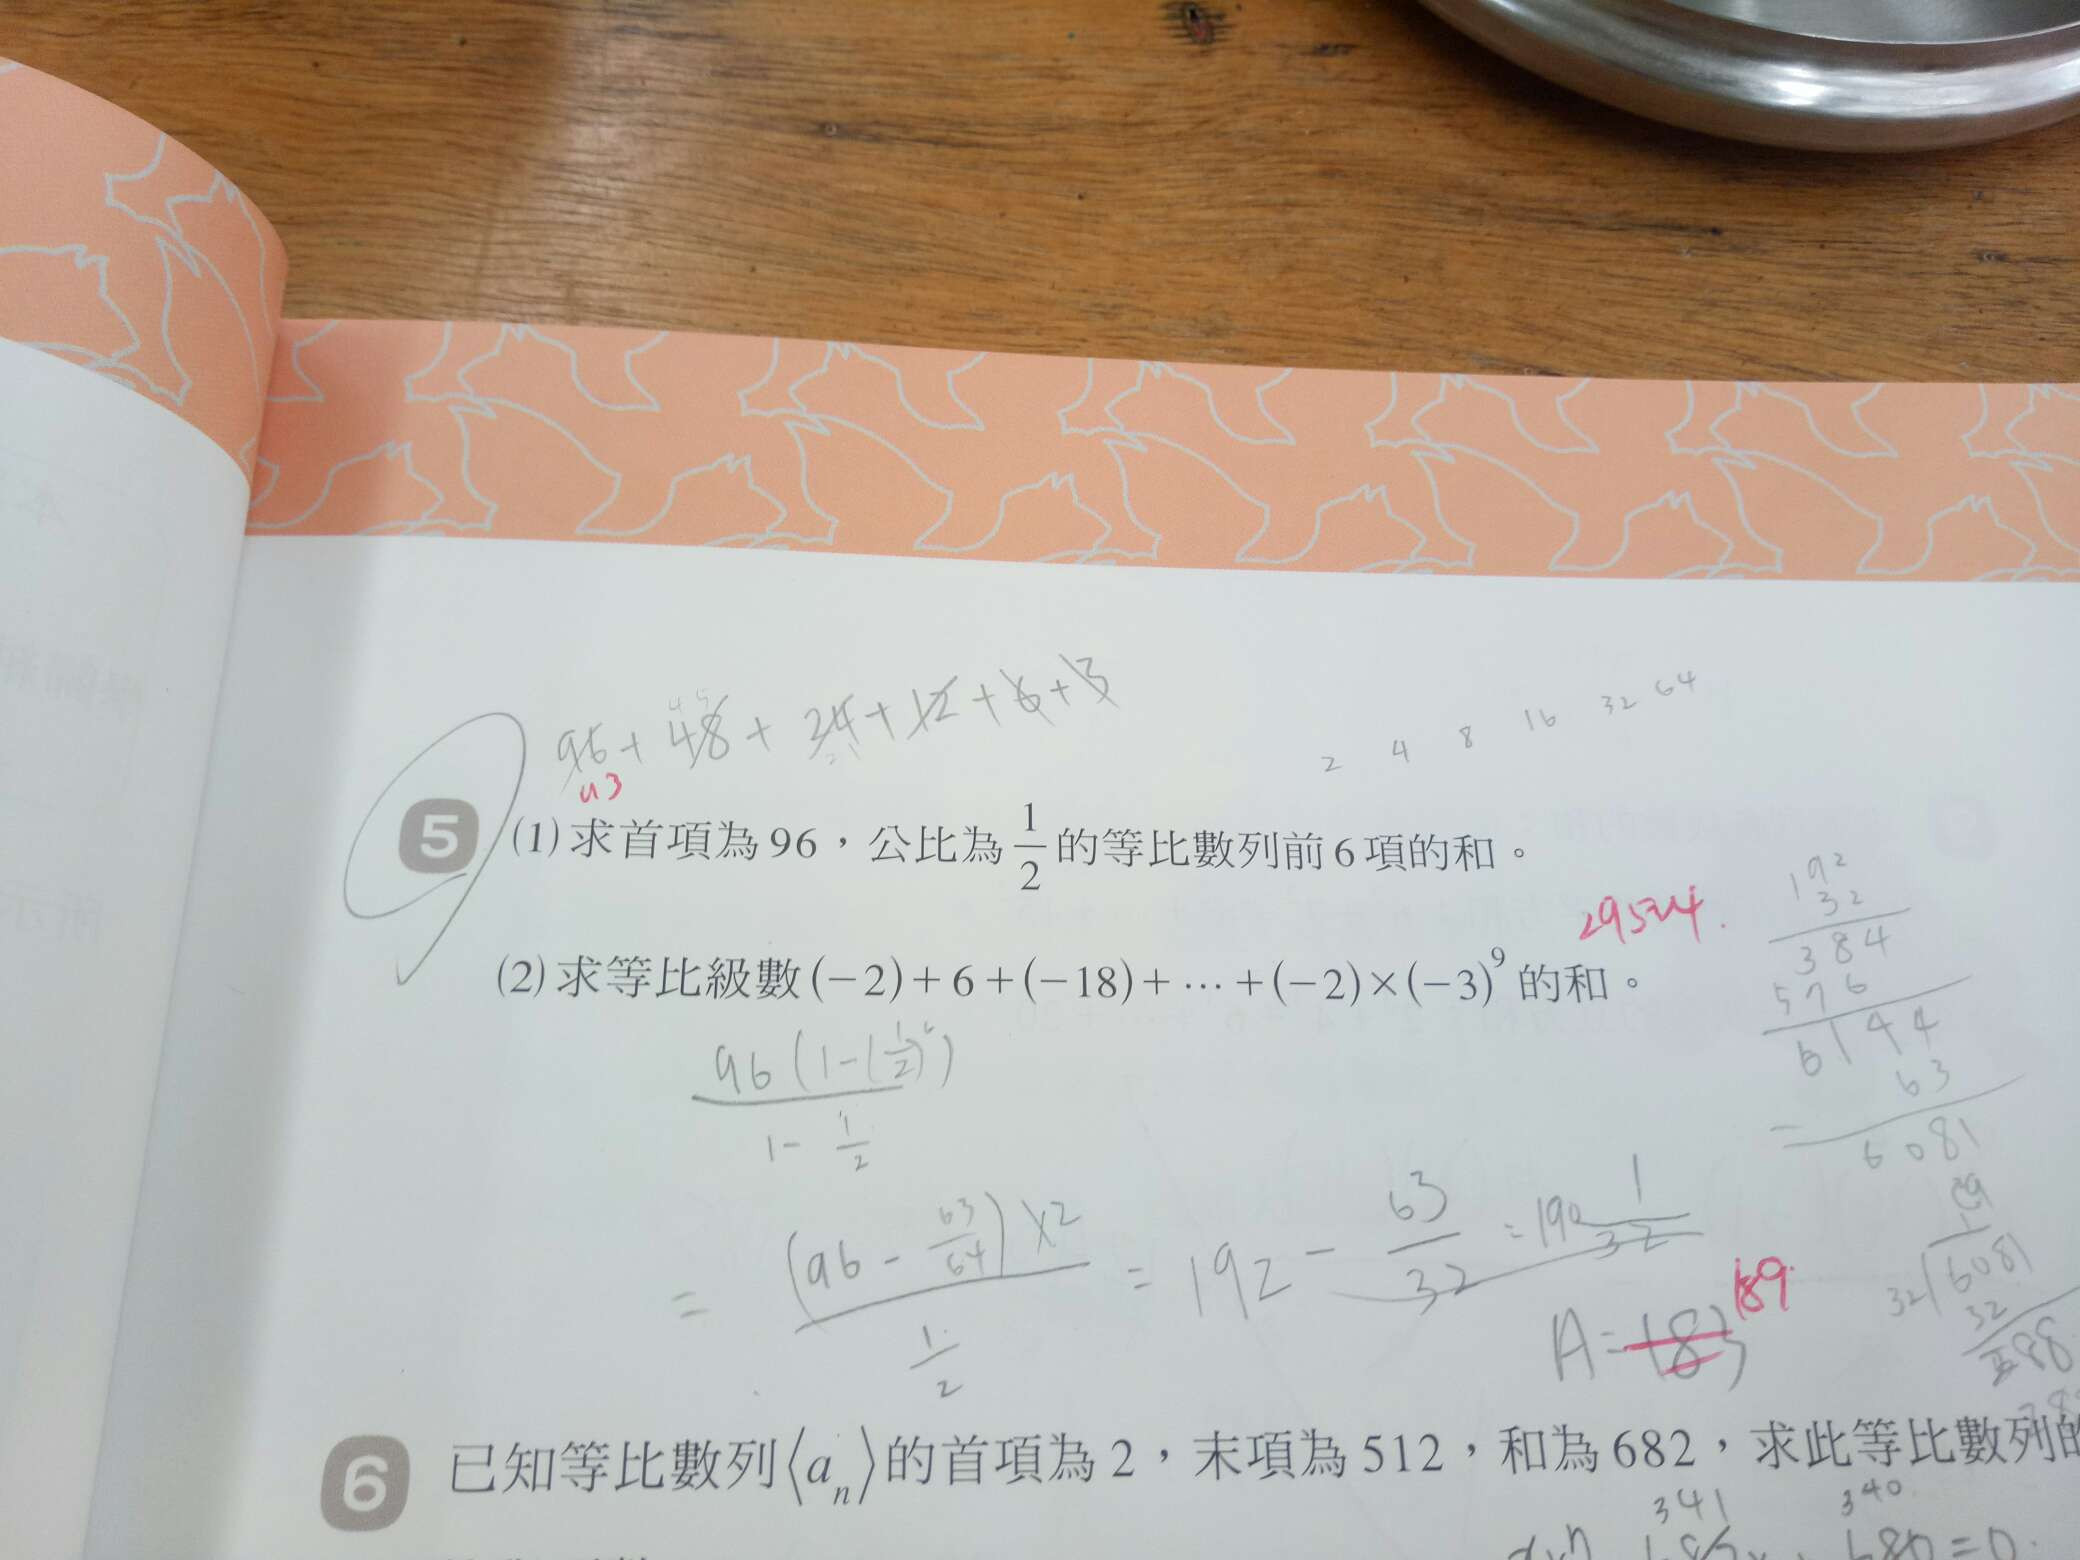 96+48+24+12+6+3
45
2 4 8 16 32 64
5 (1)求首項為96,公比為1/2的等比數列前6項的和。
29524.
(2)求等比級數(-2)+6+(-18)+…+(-2)×(-3)^9的和。
192
32
384
576
6144
63
6081
96(1-(1/2)^6)
1-1/2
=(96-63/64)×2
1/2
=192-63/32=190 1/32
A=183
189.
32
6081
32
6 已知等比數列⟨a_n⟩的首項為2,末項為512,和為682,求此等比數列的
341 340
=0.